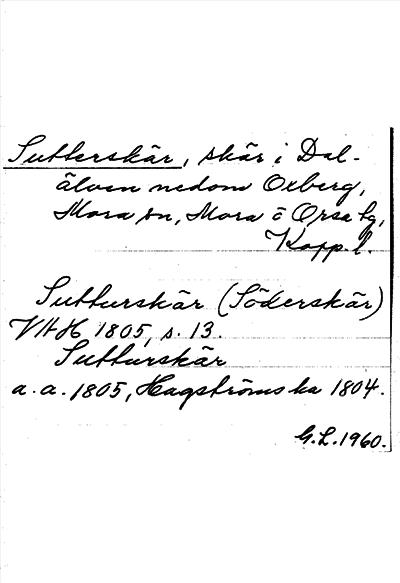 Sutterskär, skär i Dal-
älven nedom Oxberg,
Mora sn, Mora o Orsa tg,
Kopp. l.
Sutturskär (Söderskär)
VAH 1805, s. 13.
Sutturskär
a. a. 1805, Hagströms ka 1804.
G.L. 1960.